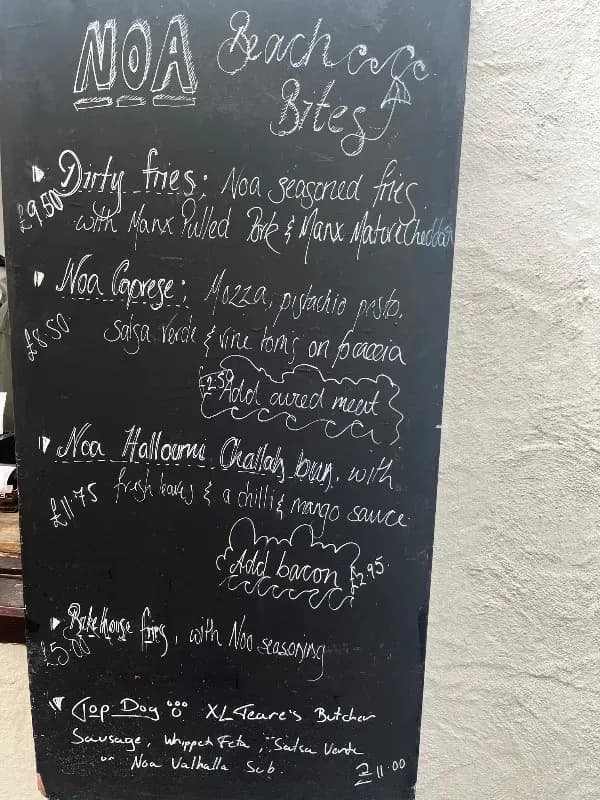 NOA Beach
Bites
Dirty fries: Noa seasoned fries
£9.50 with Manx Pulled Pork & Manx Mature Cheddar
Noa Caprese: Mozza, pistachio pesto,
£8.50 Salsa Verde & vine toms on focaccia
£2.50 Add cured meat
Noa Halloumi Challah bun, with
£11.75 fresh leaves & a chilli & mango sauce
Add bacon £2.95
Bakehouse fries, with Noa seasoning
£5.00
Top Dog XL Teare's Butcher
Sausage, Whipped Feta, Salsa Verde
on Noa Valhalla Sub.
£11.00